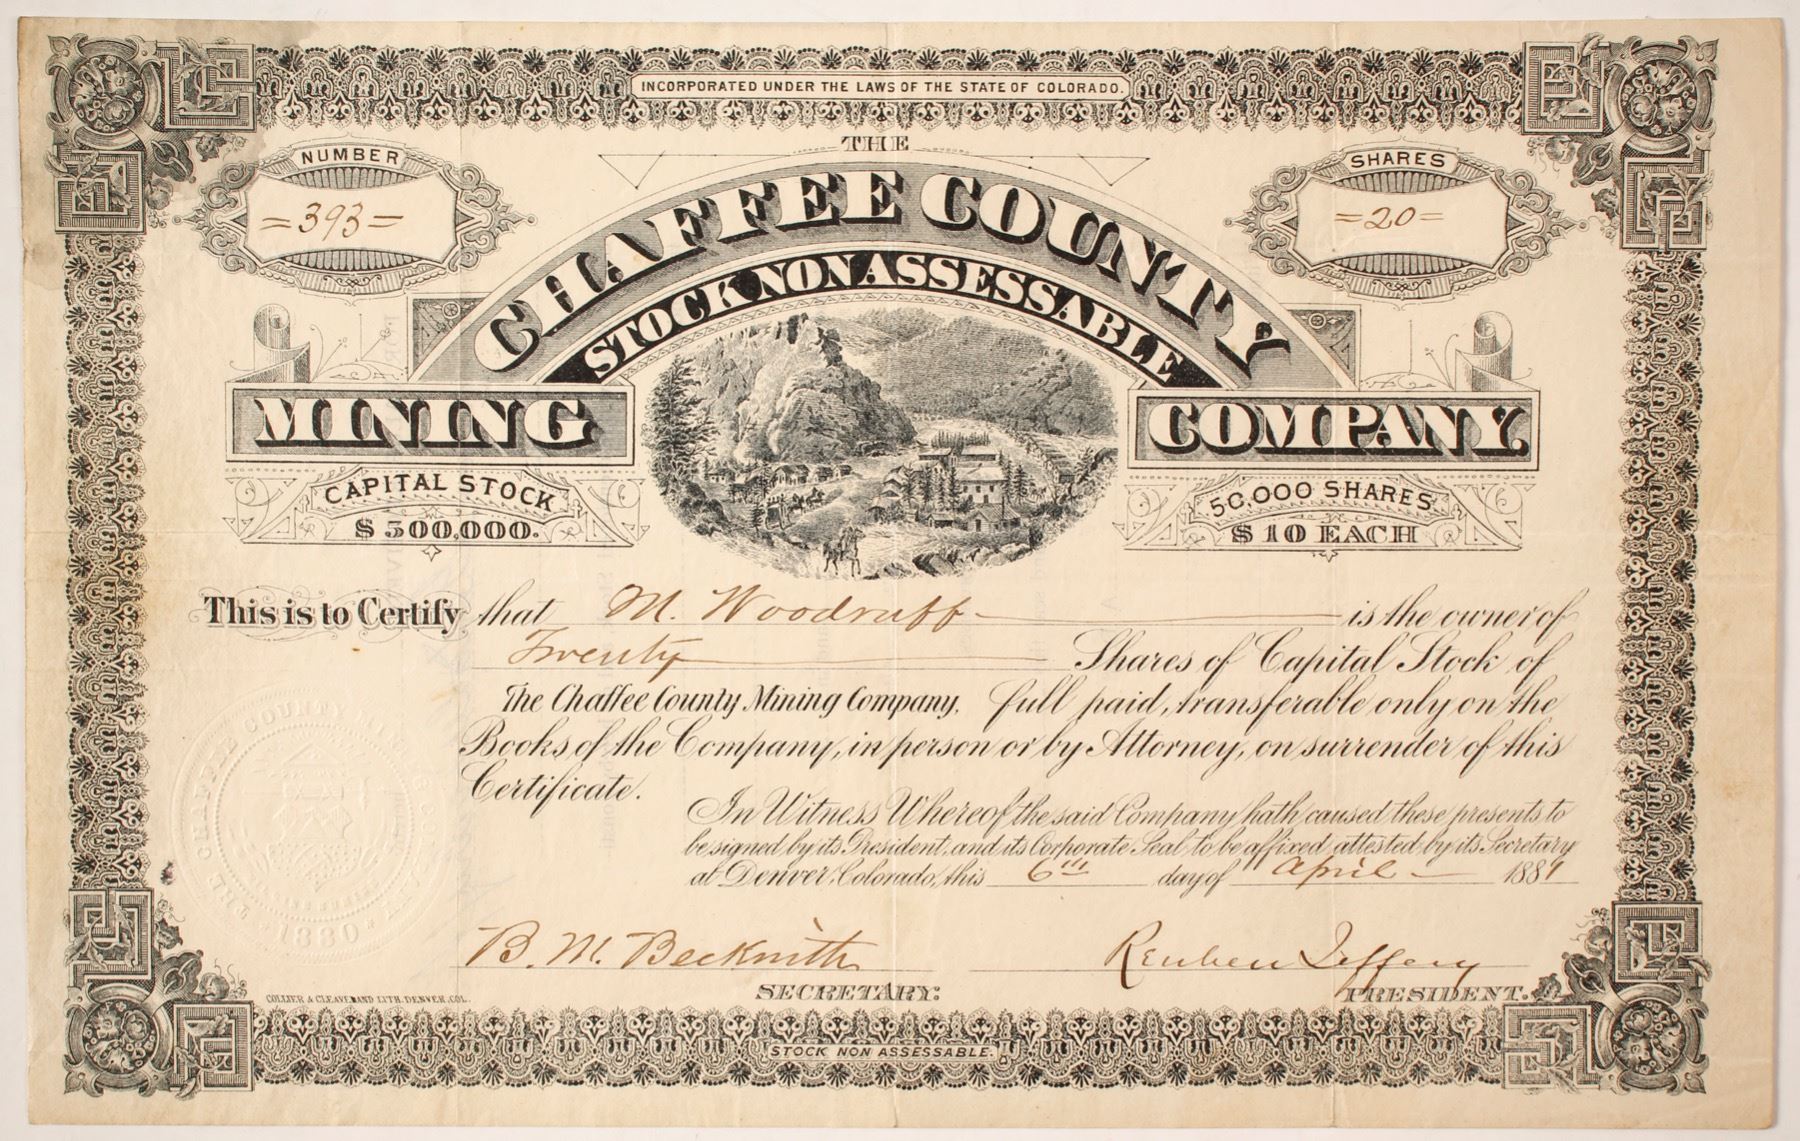 INCORPORATED UNDER THE LAWS OF THE STATE OF COLORADO.
THE
NUMBER
=393=
SHARES
=20=
CHAFFEE COUNTY
STOCK NON ASSESSABLE
MINING
COMPANY.
CAPITAL STOCK
$500,000.
50,000 SHARES
$10 EACH
This is to Certify that M. Woodruff is the owner of
Twenty Shares of Capital Stock of
The Chaffee County Mining Company, full paid, transferable only on the
Books of the Company, in person or by Attorney, on surrender of this
Certificate.
In Witness Whereof the said Company hath caused these presents to
be signed by its President, and its Corporate Seal to be affixed attested by its Secretary
at Denver, Colorado, this 6th day of April 1881
THE CHAFFEE COUNTY MINING COMPANY
1880
B. M. Beckwith
Reuben Jeffery
SECRETARY:
PRESIDENT.
COLLIER & CLEAVELAND LITH. DENVER, COL.
STOCK NON ASSESSABLE.